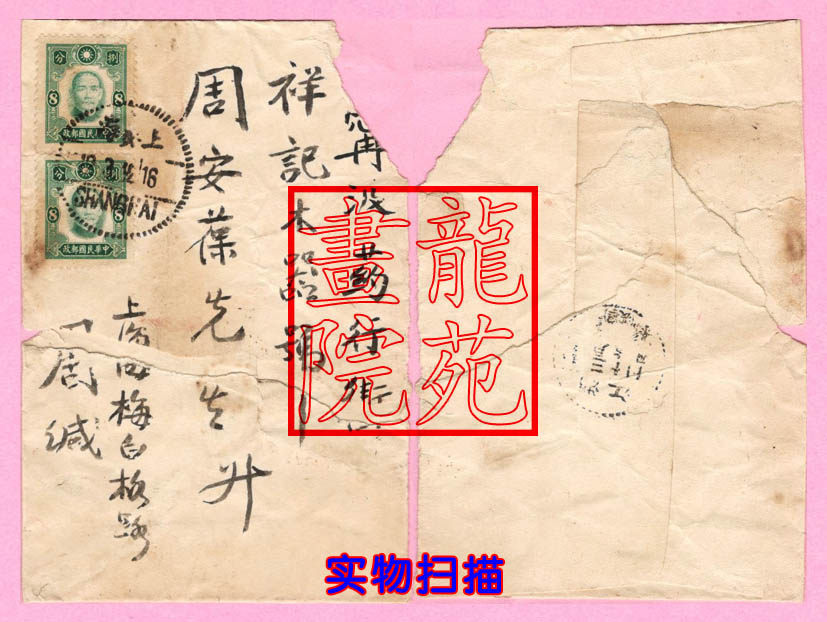 分 捌
8 8
政郵國民
上海
16
SHANGHAI
分 捌
8 8
政郵國民華中
甯波药行街
祥記木器號
周安葆先生升
上海梅白格路
周緘
龍苑
畫院
实物扫描